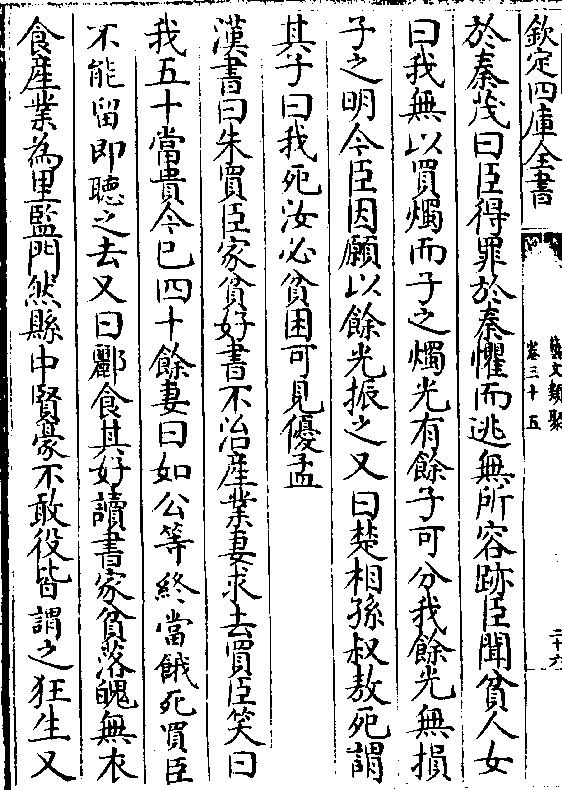 欽定四庫全書
藝文類聚
卷三十五
二十六
於秦茂曰臣得罪於秦懼而逃無所容跡臣聞貧人女
曰我無以買燭而子之燭光有餘子可分我餘光無損
子之明今臣困願以餘光振之又曰楚相孫叔敖死謂
其子曰我死汝必貧困可見優孟
漢書曰朱買臣家貧好書不治產業妻求去買臣笑曰
我五十當貴今已四十餘妻曰如公等終當餓死買臣
不能留即聽之去又曰酈食其好讀書家貧落魄無衣
食産業為里監門然縣中賢豪不敢役皆謂之狂生又